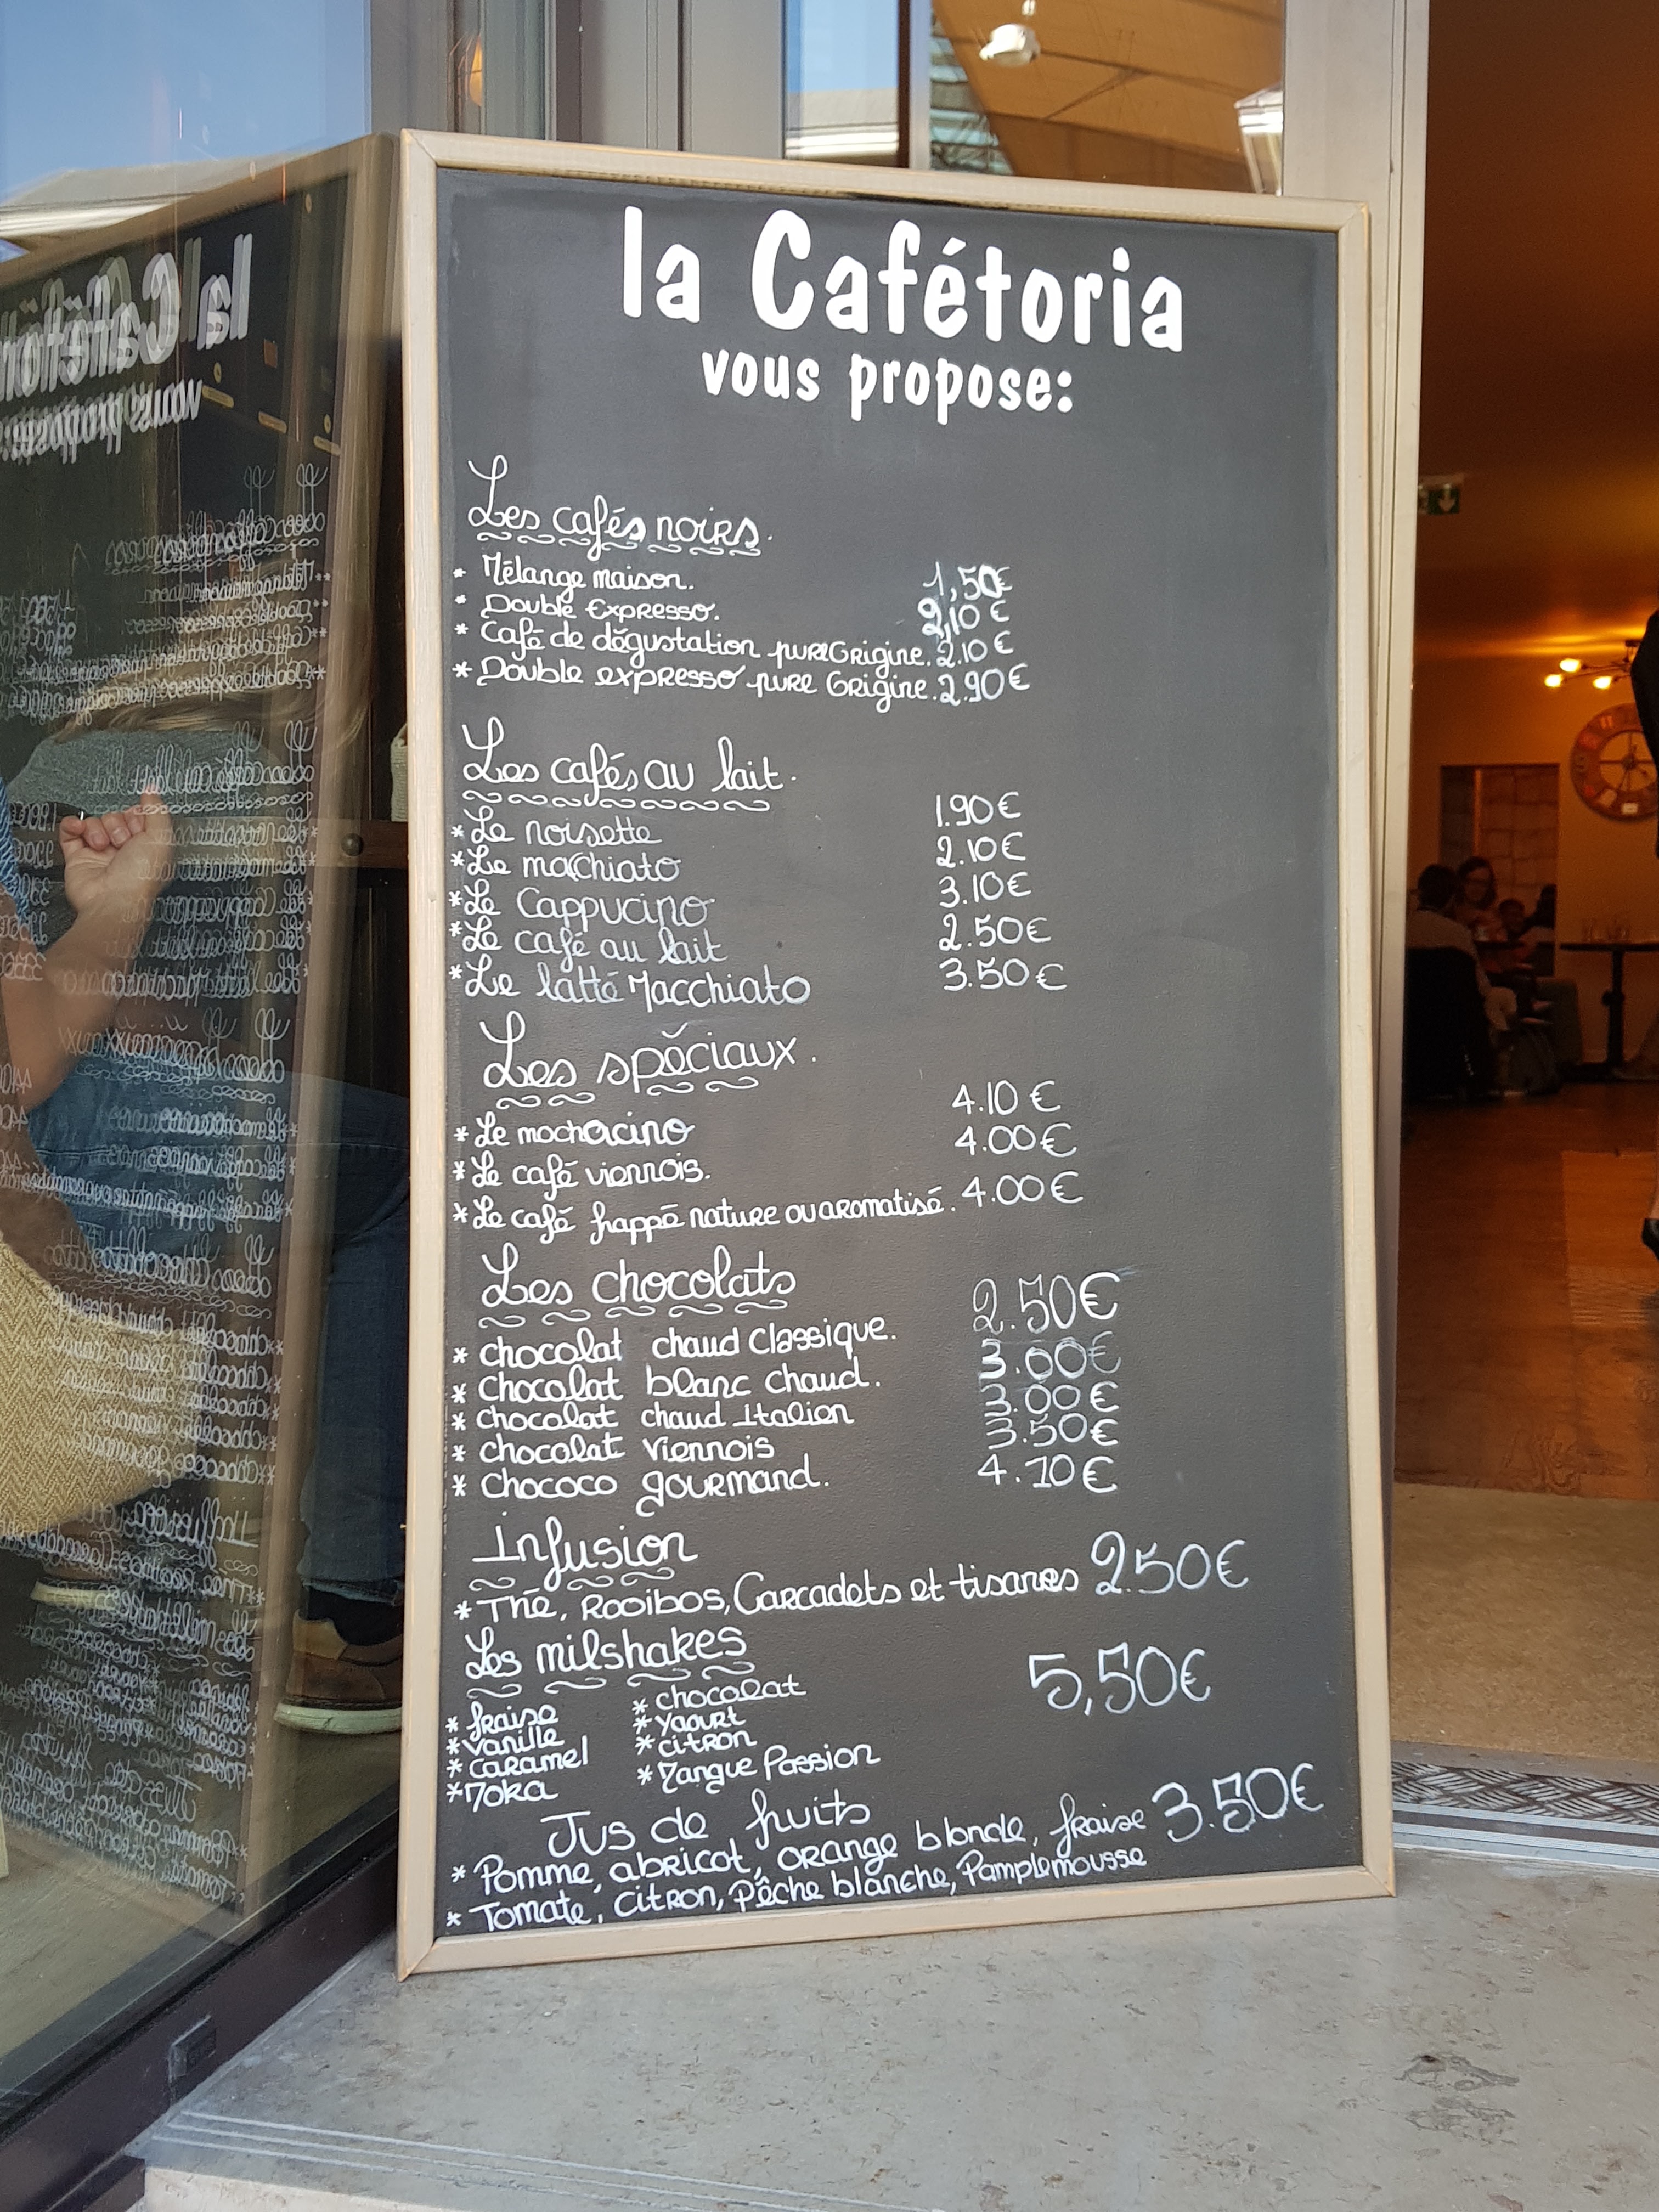 la Cafétoria
vous propose:
Les cafés noirs.
* Mélange maison. 1,50€
* Double Expresso. 2,10€
* Café de dégustation pure Origine. 2.10€
* Double expresso pure Origine. 2.90€
Les cafés au lait.
* Le noisette 1.90€
* Le macchiato 2.10€
* Le Cappucino 3.10€
* Le café au lait 2.50€
* Le latté Macchiato 3.50€
Les spéciaux.
* Le mochacino 4.10€
* Le café viennois. 4.00€
* Le café frappé nature ou aromatisé. 4.00€
Les chocolats
* chocolat chaud Classique. 2.50€
* chocolat blanc chaud. 3.00€
* chocolat chaud Italien 3.00€
* chocolat viennois 3.50€
* chococo gourmand. 4.10€
Infusion
* Thé, Rooibos, Carcadets et tisanes 2.50€
Les milshakes 5,50€
* fraise * chocolat
* vanille * yaourt
* caramel * citron
* Moka * Mangue Passion
Jus de fruits
* Pomme, abricot, orange blonde, fraise 3.50€
* Tomate, Citron, Pêche blanche, Pamplemousse